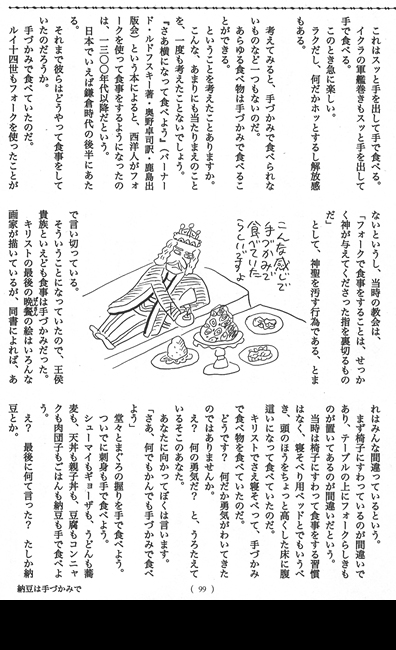 これはスッと手を出して手で食べる。
イクラの軍艦巻きもスッと手を出して
手で食べる。
このとき急に楽しい。
ラクだし、何だかホッとするし解放感
もある。
考えてみると、手づかみで食べられな
いものなど一つもないのだ。
あらゆる食べ物は手づかみで食べるこ
とができる。
ということを考えたことありますか。
こんな、あまりにも当たりまえのこと
を、一度も考えたことないでしょう。
『さあ横になって食べよう』（バーナー
ド・ルドフスキー著・奥野卓司訳・鹿島出
版会）という本によると、西洋人がフォ
ークを使って食事をするようになったの
は、一三〇〇年代以降だという。
日本でいえば鎌倉時代の後半にあた
る。
それまで彼らはどうやって食事をして
いたのだろうか。
手づかみで食べていたのだ。
ルイ十四世もフォークを使ったことが
ないというし、当時の教会は、
「フォークで食事をすることは、せっか
く神が与えてくださった指を裏切るもの
だ」
として、神聖を汚す行為である、とま
で言い切っている。
そういうことになっていたので、王侯
貴族といえども食事は手づかみだった。
キリストの最後の晩餐の絵はいろんな
画家が描いているが、同書によれば、あ
こんな感じで
手づかみで
食べていた
らしいですよ
れはみんな間違っているという。
まず椅子にすわっているのが間違いで
あり、テーブルの上にフォークらしきも
のが置いてあるのが間違いだという。
当時は椅子にすわって食事をする習慣
はなく、寝そべり用ベッドとでもいうべ
き、頭のほうをちょっと高くした床に腹
這いになって食べていたのだ。
キリストでさえ寝そべって、手づかみ
で食べ物を食べていたのだ。
どうです？　何だか勇気がわいてきた
のではありませんか。
え？　何の勇気だ？　と、うろたえて
いるそこのあなた。
あなたに向かってぼくは言います。
「さあ、何でもかんでも手づかみで食べ
よう」
堂々とまぐろの握りを手で食べよう。
ついでに刺身も手で食べよう。
シューマイもギョーザも、うどんも蕎
麦も、天丼も親子丼も、豆腐もコンニャ
クも肉団子もごはんも納豆も手で食べよ
う。
え？　最後に何て言った？　たしか納
豆とか。
( 99 )
納豆は手づかみで